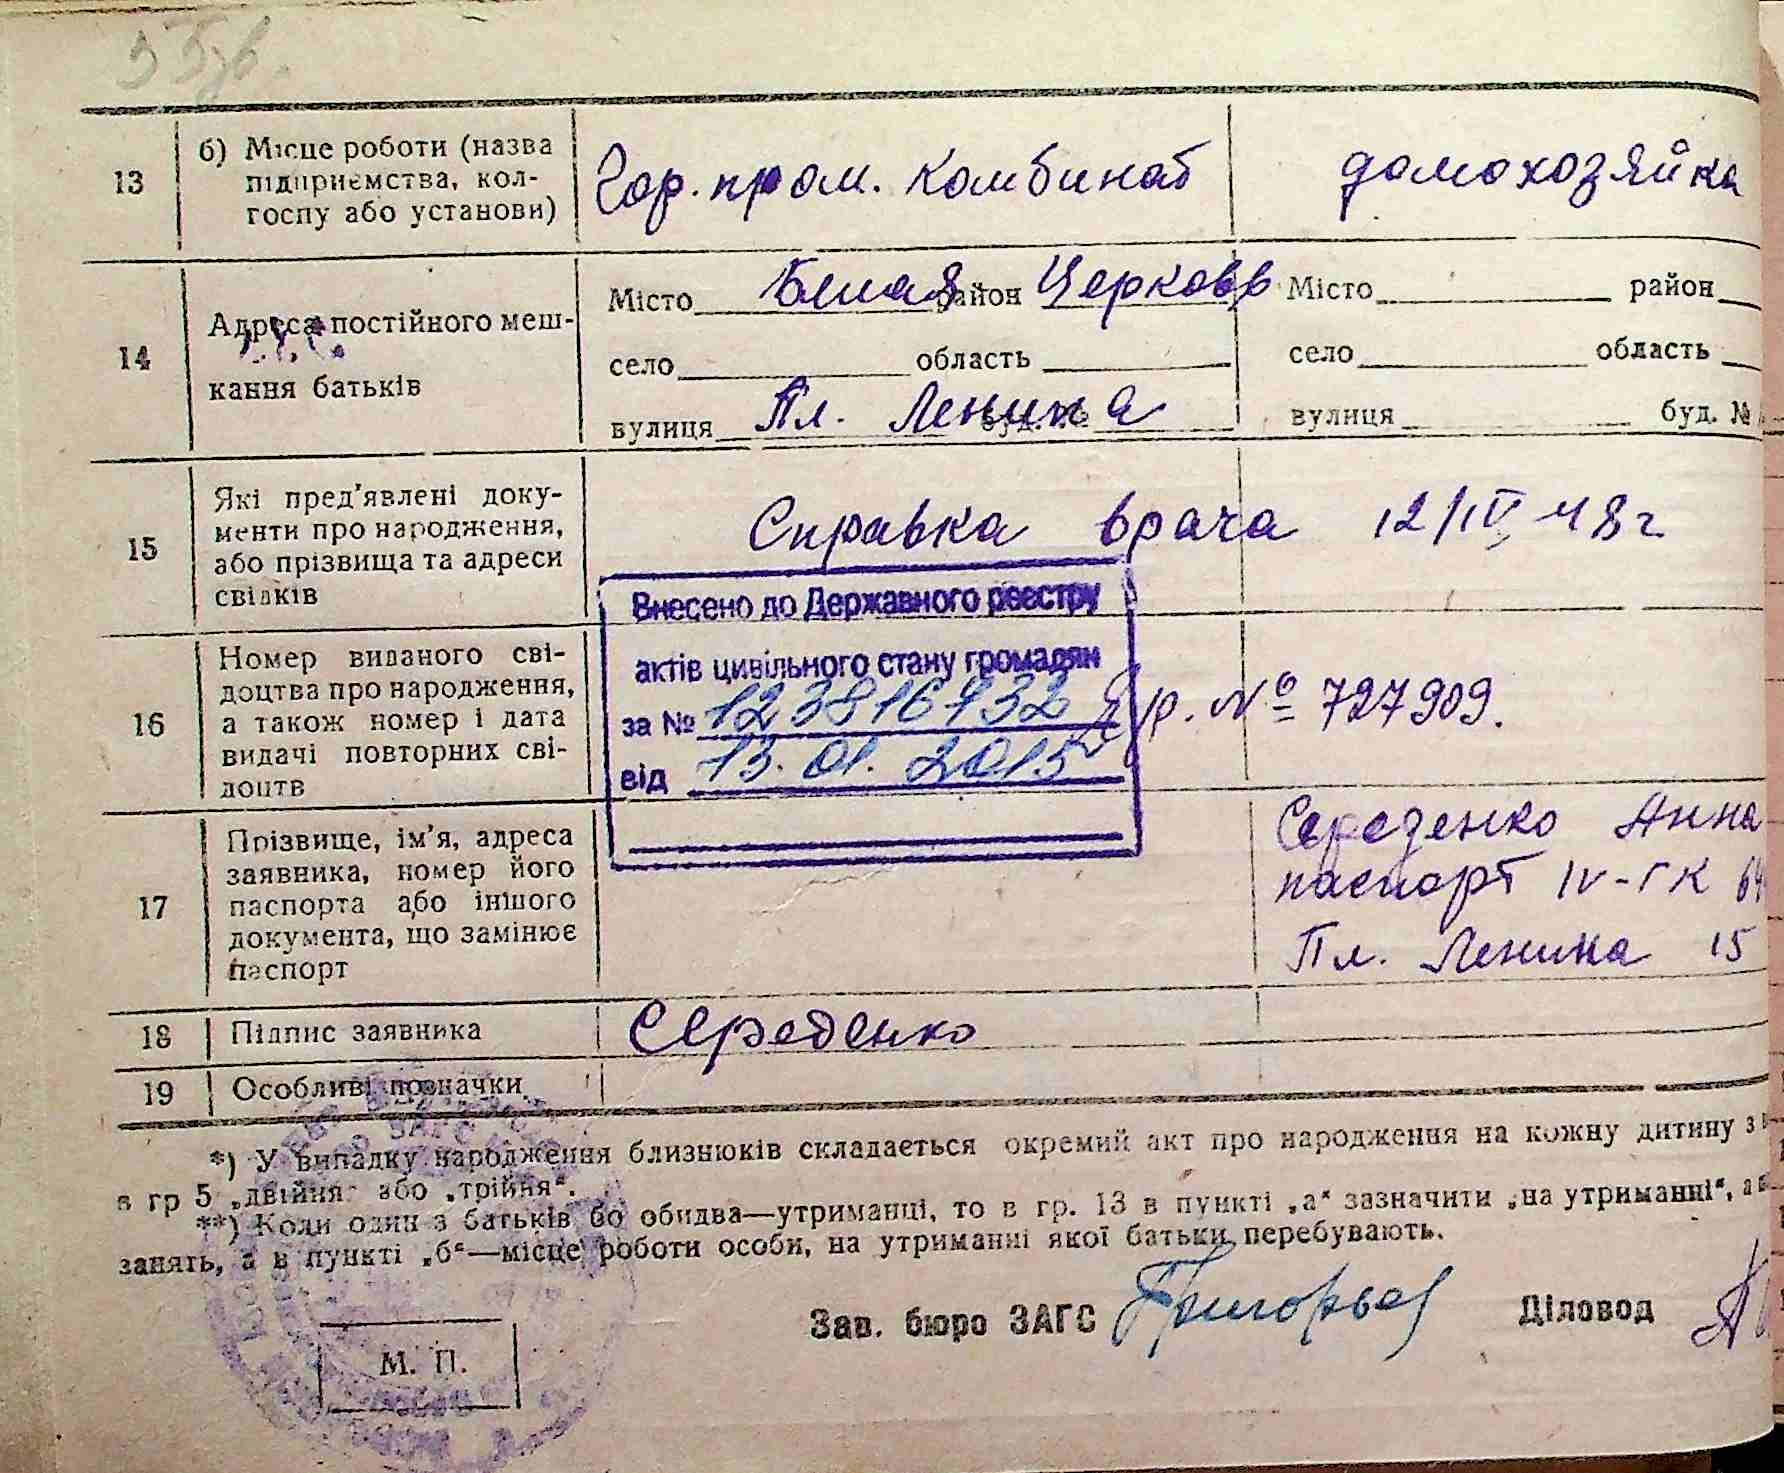 13
б) Місце роботи (назва
підприємства, кол-
госпу або установи)
Гор. пром. комбинат
домохозяйка
14
Адреса постійного меш-
кання батьків
Місто Белая район Церковь
село область
вулиця Пл. Ленина буд. №
Місто район
село область
вулиця буд. №
15
Які пред'явлені доку-
менти про народження,
або прізвища та адреси
свідків
Справка врача 12/IV 48 г.
Внесено до Державного реєстру
актів цивільного стану громадян
за №
від 13. 01. 2015
16
Номер виданого сві-
доцтва про народження,
а також номер і дата
видачі повторних сві-
доцтв
№ 727909.
17
Прізвище, ім'я, адреса
заявника, номер його
паспорта або іншого
документа, що замінює
паспорт
Середенко Анна
паспорт IV-ГК
Пл. Ленина 15
18
Підпис заявника
Середенко
19
Особливі позначки
*) У випадку народження близнюків складається окремий акт про народження на кожну дитину з
в гр 5 „двійня“ або „трійня“.
**) Коли один з батьків бо обидва—утриманці, то в гр. 13 в пункті „а“ зазначити „на утриманні“, а
занять, а в пункті „б“—місце роботи особи, на утриманні якої батьки перебувають.
Зав. бюро ЗАГС
Діловод
М. П.